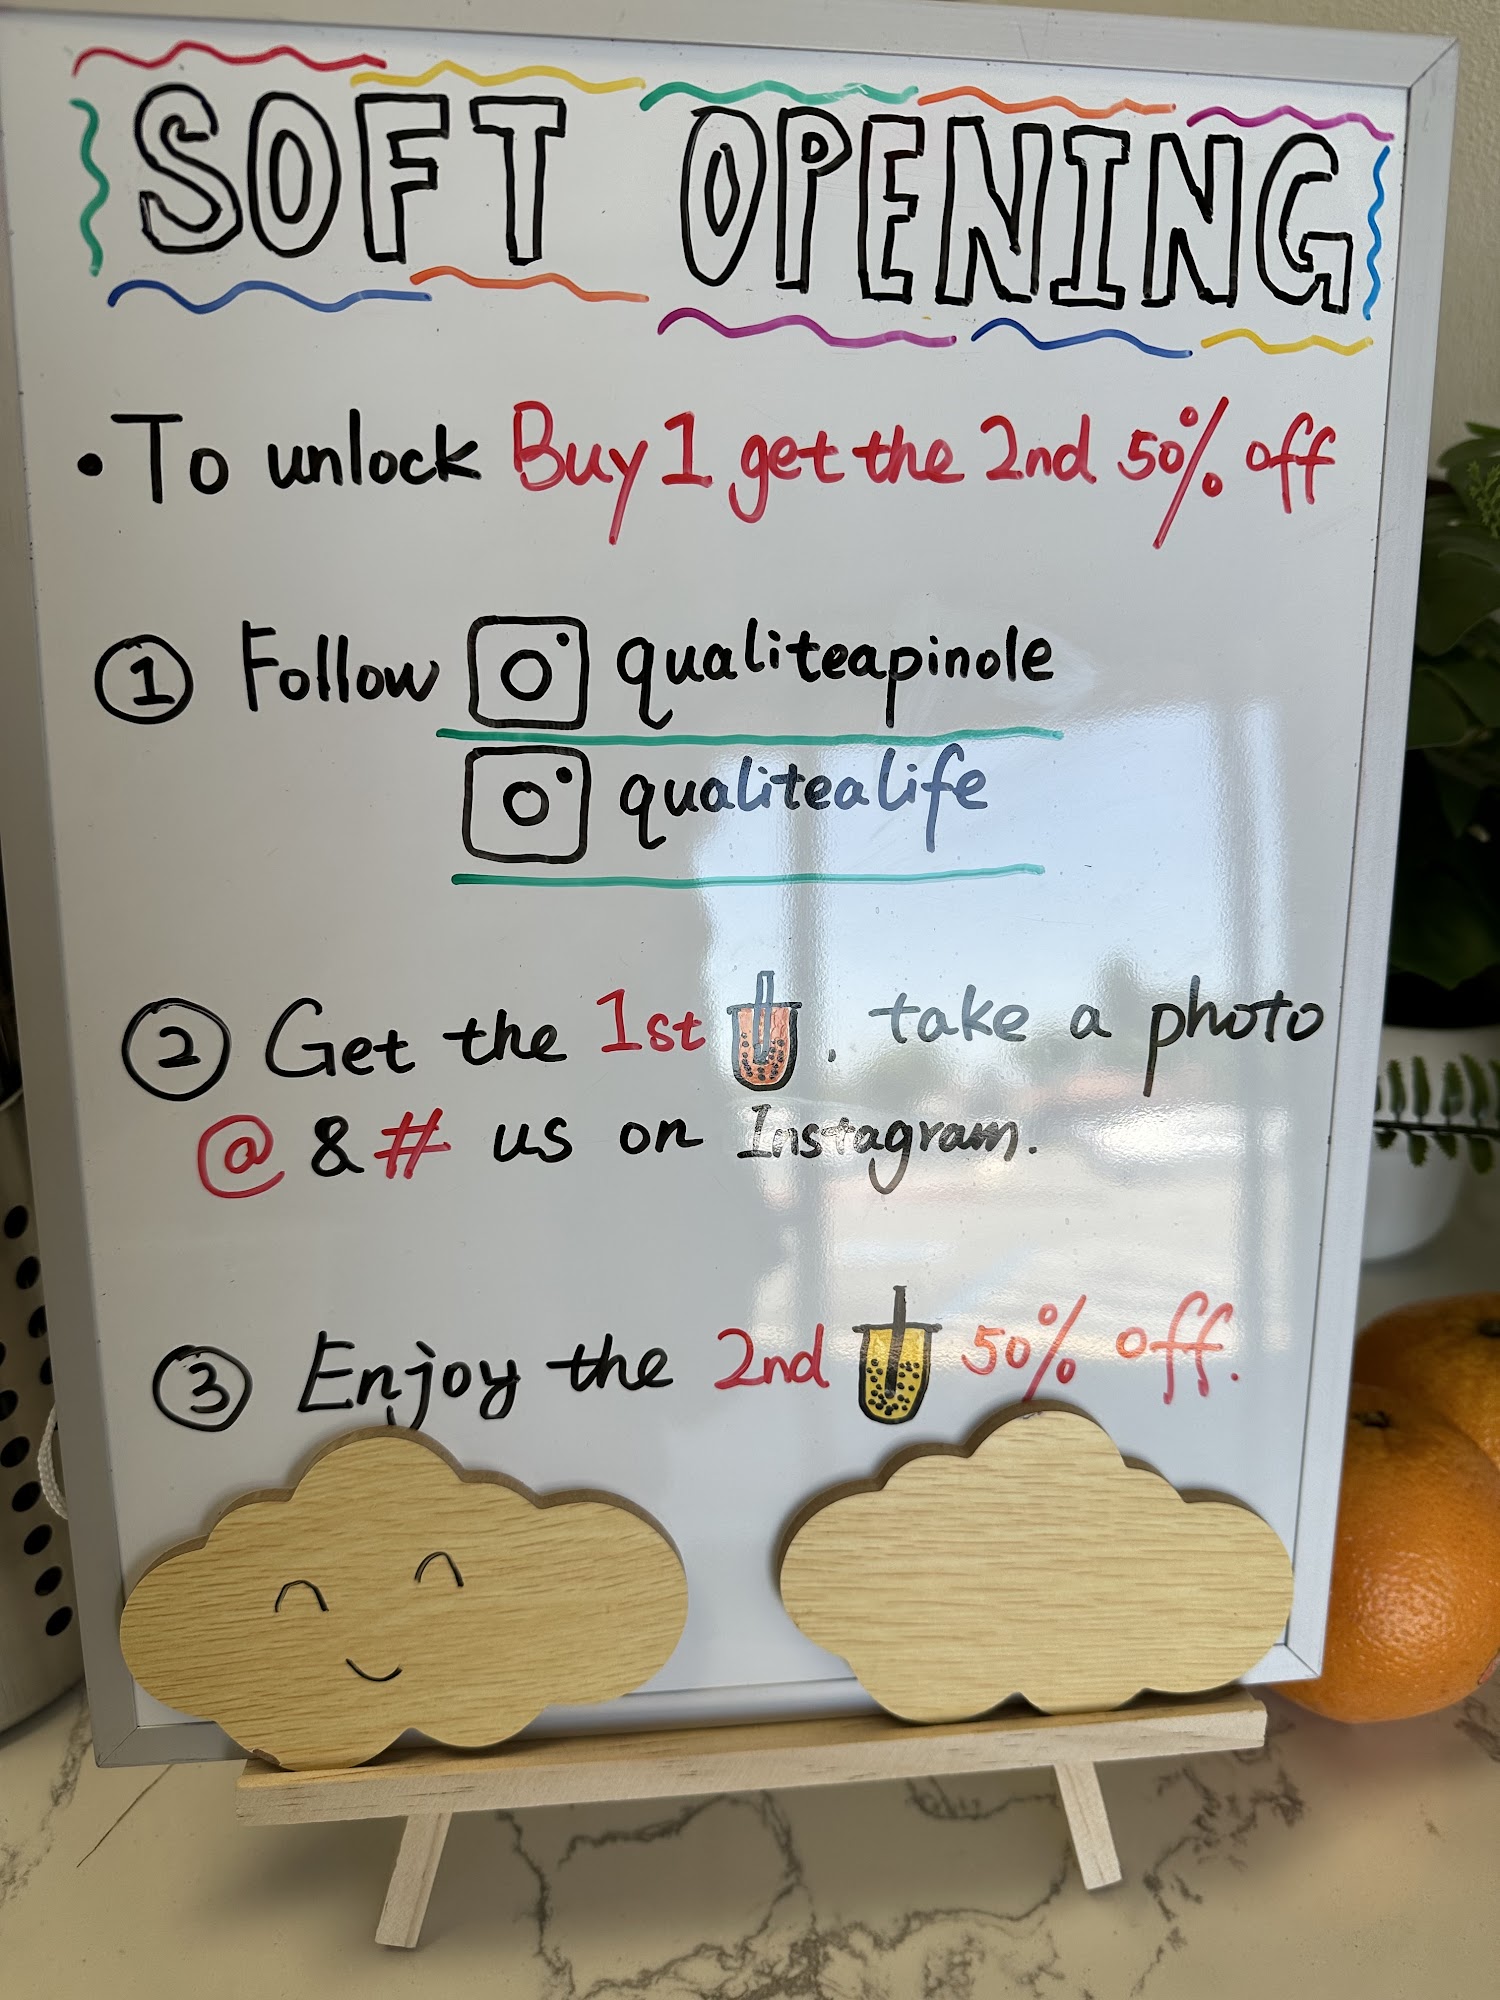 SOFT OPENING
• To unlock Buy 1 get the 2nd 50% off
① Follow qualiteapinole
qualitealife
② Get the 1st . take a photo
@ & # us on Instagram.
③ Enjoy the 2nd 50% off.